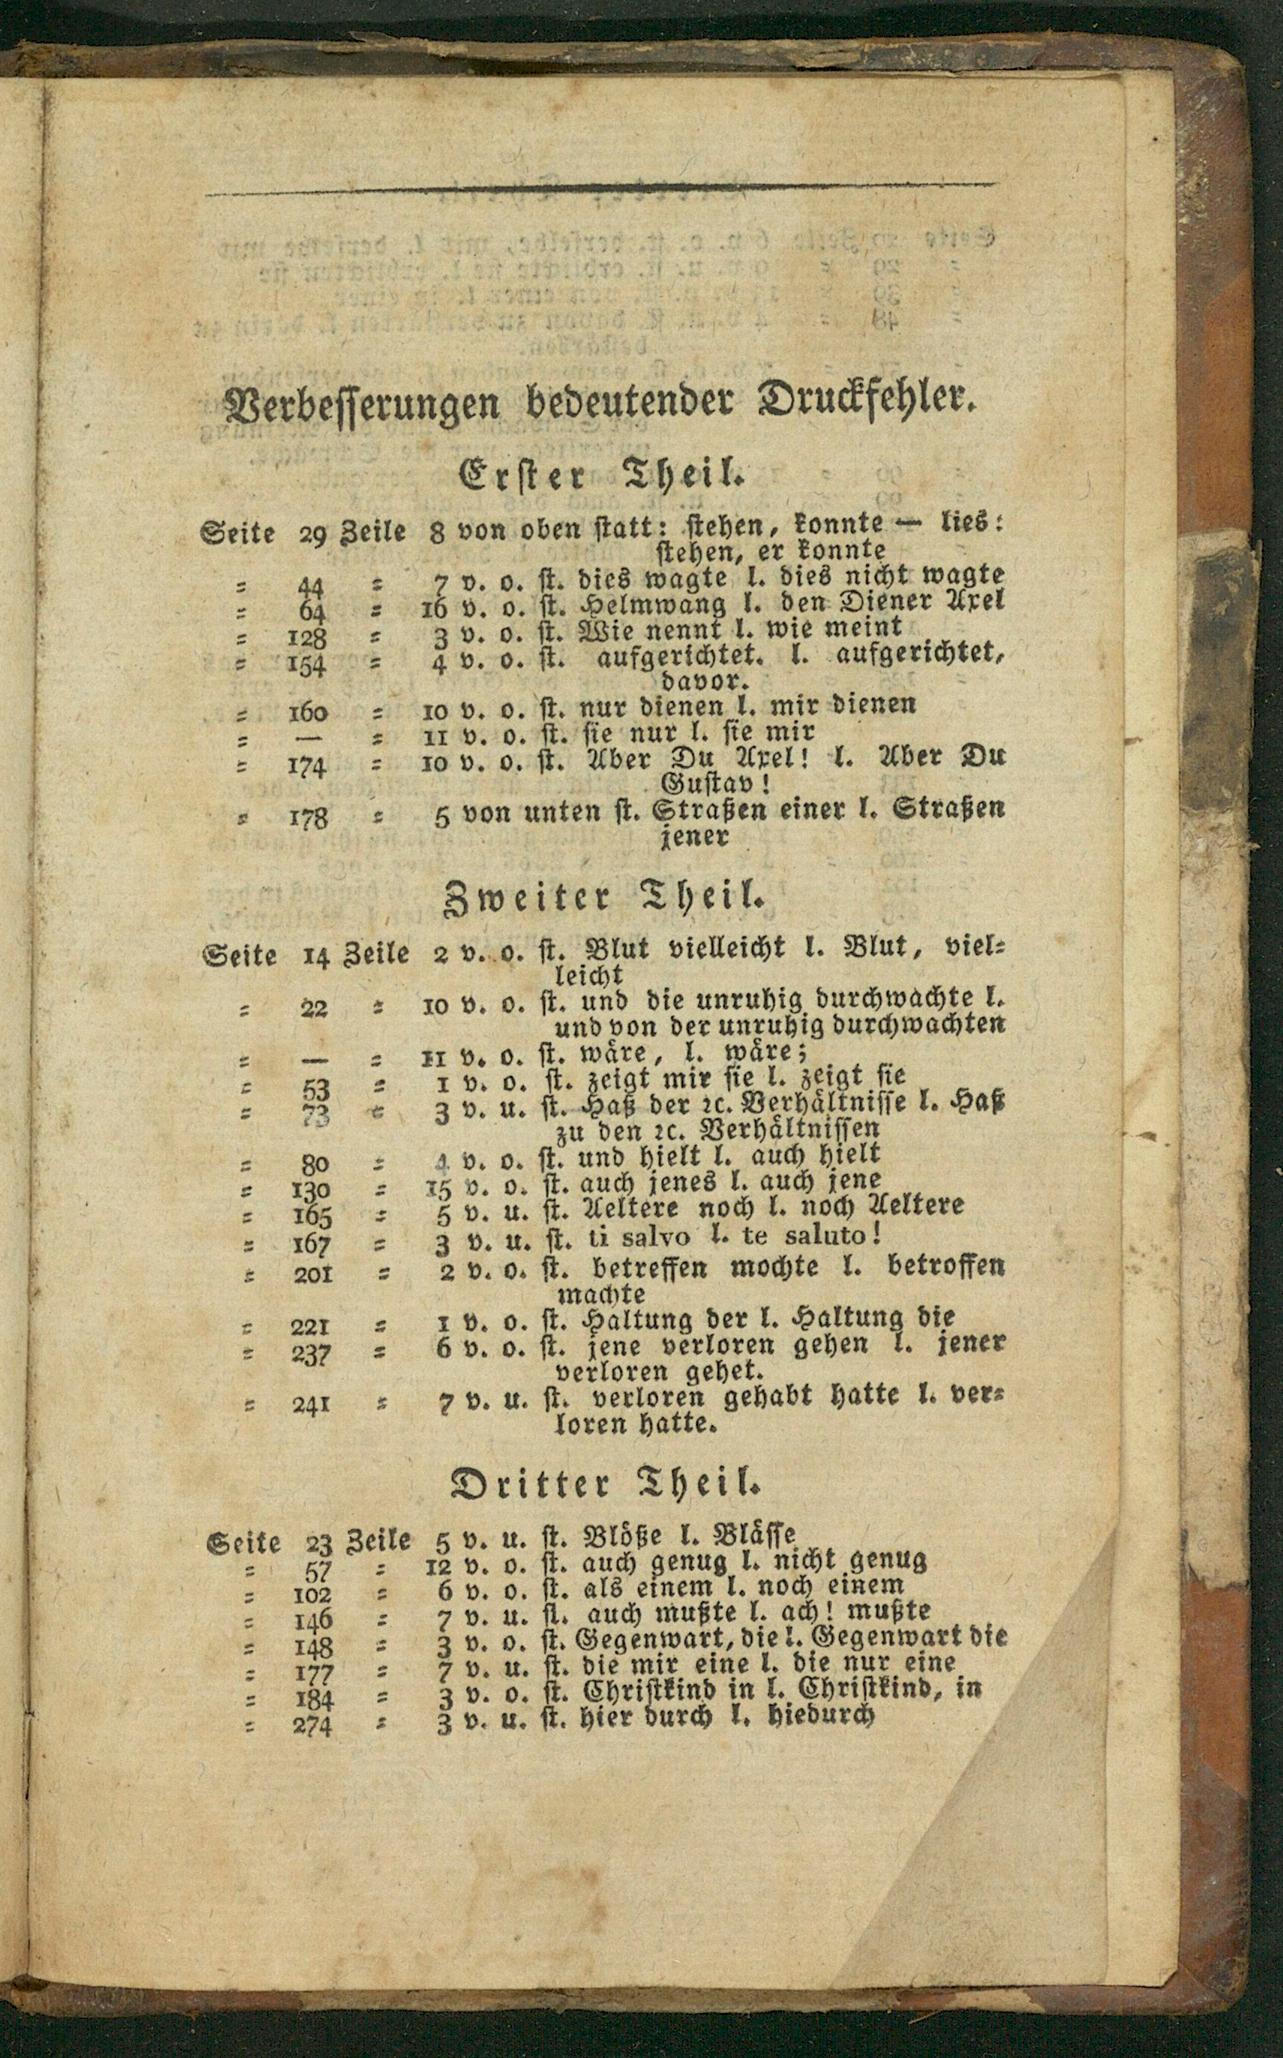 Verbesserungen bedeutender Druckfehler.
Erster Theil.
Seite 29 Zeile 8 von oben statt: stehen, konnte — lies:
stehen, er konnte
= 44 = 7 v. o. st. dies wagte l. dies nicht wagte
= 64 = 16 v. o. st. Helmwang l. den Diener Axel
= 128 = 3 v. o. st. Wie nennt l. wie meint
= 154 = 4 v. o. st. aufgerichtet. l. aufgerichtet,
davor.
= 160 = 10 v. o. st. nur dienen l. mir dienen
= — = 11 v. o. st. sie nur l. sie mir
= 174 = 10 v. o. st. Aber Du Axel! l. Aber Du
Gustav!
= 178 = 5 von unten st. Straßen einer l. Straßen
jener
Zweiter Theil.
Seite 14 Zeile 2 v. o. st. Blut vielleicht l. Blut, viel=
leicht
= 22 = 10 v. o. st. und die unruhig durchwachte l.
und von der unruhig durchwachten
= — = 11 v. o. st. wäre, l. wäre;
= 53 = 1 v. o. st. zeigt mir sie l. zeigt sie
= 73 = 3 v. u. st. Haß der ꝛc. Verhältnisse l. Haß
zu den ꝛc. Verhältnissen
= 80 = 4 v. o. st. und hielt l. auch hielt
= 130 = 15 v. o. st. auch jenes l. auch jene
= 165 = 5 v. u. st. Aeltere noch l. noch Aeltere
= 167 = 3 v. u. st. ti salvo l. te saluto!
= 201 = 2 v. o. st. betreffen mochte l. betroffen
machte
= 221 = 1 v. o. st. Haltung der l. Haltung die
= 237 = 6 v. o. st. jene verloren gehen l. jener
verloren gehet.
= 241 = 7 v. u. st. verloren gehabt hatte l. ver=
loren hatte.
Dritter Theil.
Seite 23 Zeile 5 v. u. st. Blöße l. Blässe
= 57 = 12 v. o. st. auch genug l. nicht genug
= 102 = 6 v. o. st. als einem l. noch einem
= 146 = 7 v. u. st. auch mußte l. ach! mußte
= 148 = 3 v. o. st. Gegenwart, die l. Gegenwart die
= 177 = 7 v. u. st. die mir eine l. die nur eine
= 184 = 3 v. o. st. Christkind in l. Christkind, in
= 274 = 3 v. u. st. hier durch l. hiedurch